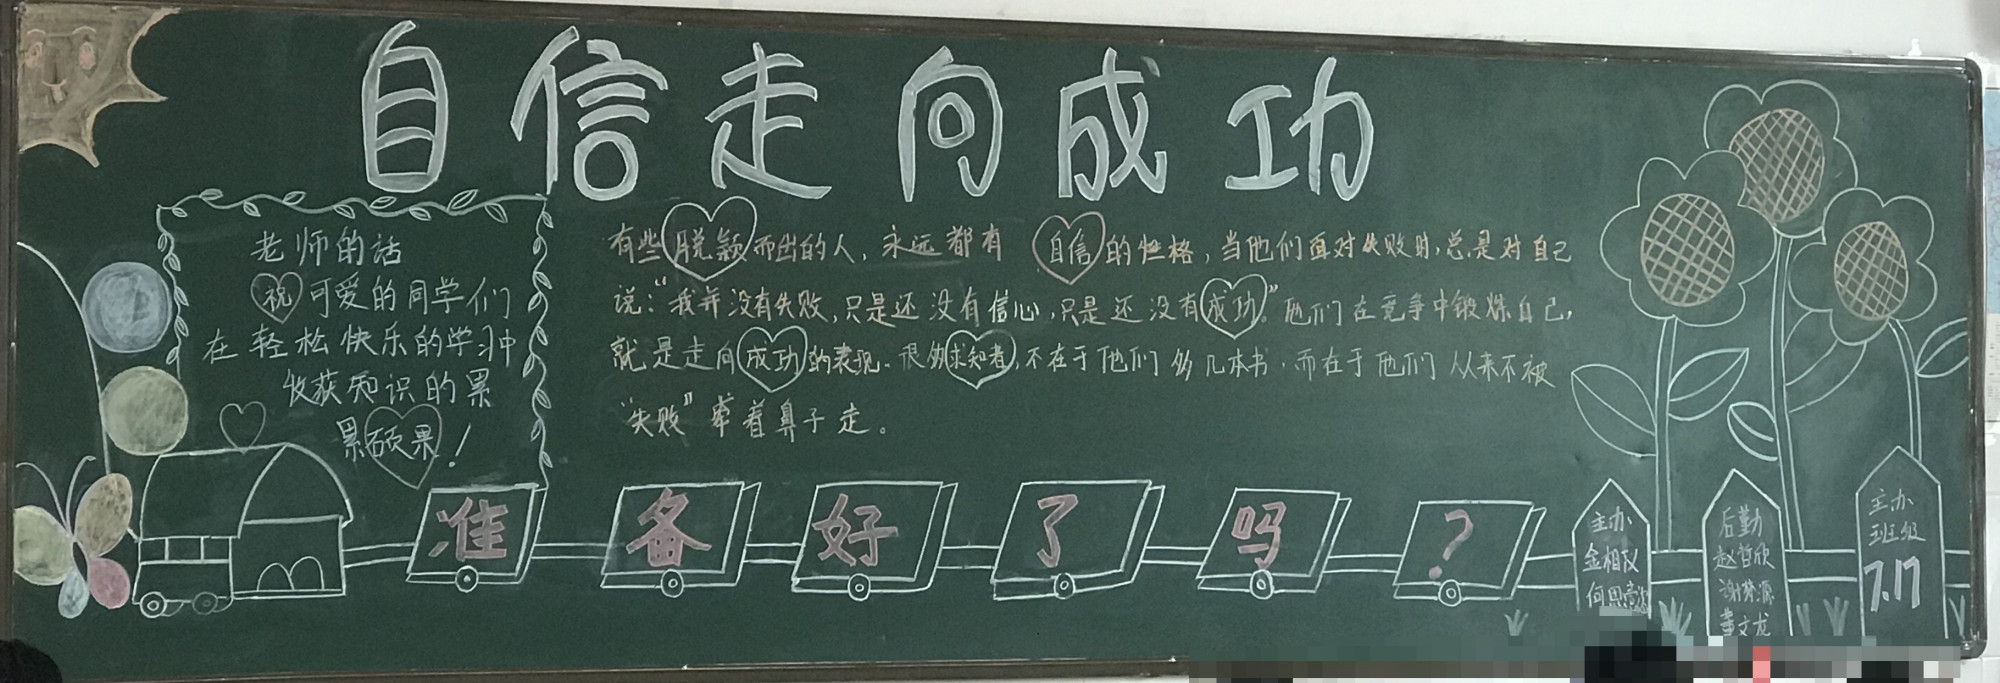 自信走向成功
老师的话
祝可爱的同学们
在轻松快乐的学习中
收获知识的累
累硕果！
有些脱颖而出的人，永远都有自信的性格，当他们面对失败时，总是对自己
说：“我并没有失败，只是还没有信心，只是还没有成功。”他们在竞争中锻炼自己，
就是走向成功的表现。很多求知者，不在于他们多几本书，而在于他们从来不被
“失败”牵着鼻子走。
准备好了吗？
主办
金相
何思
后勤
赵哲欣
谢梦源
董文龙
主办
班级
7.17